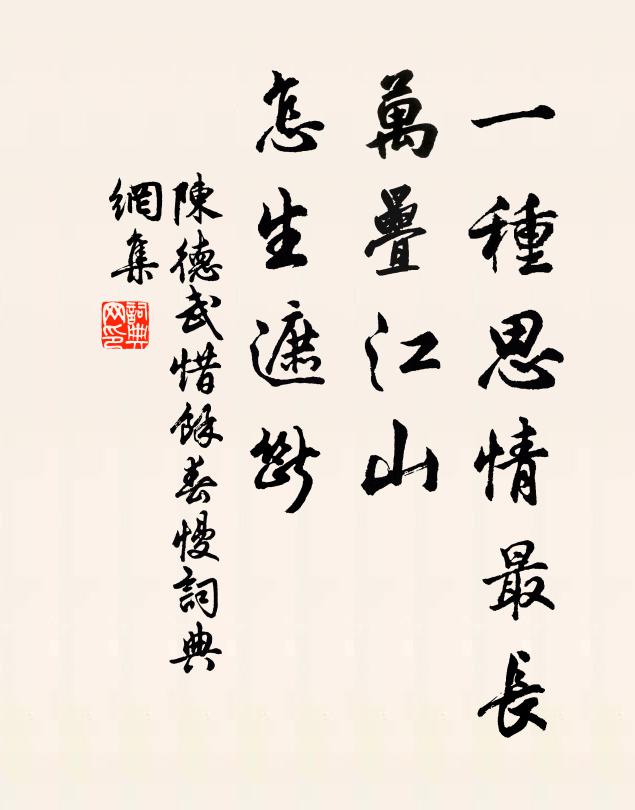 一種思情最長
萬疊江山
怎生遮斷
陳德武惜餘春慢詞典
網集
詞典
網印